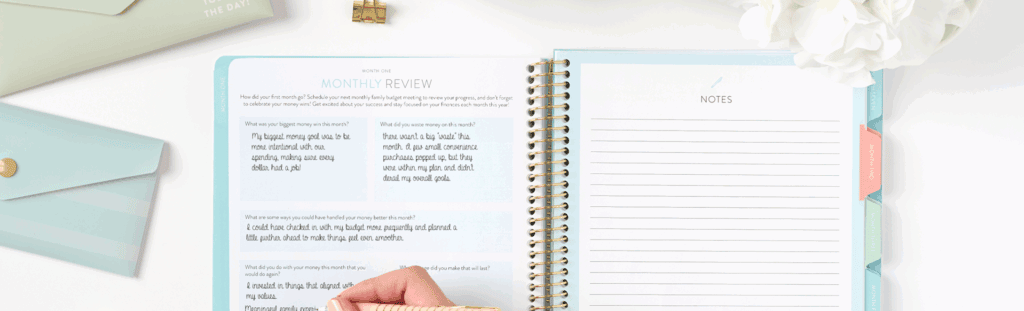 THE DAY!
MONTH ONE
MONTHLY REVIEW
How did your first month go? Schedule your next monthly family budget meeting to review your progress, and don't forget
to celebrate your money wins! Get excited about your success and stay focused on your finances each month this year!
What was your biggest money win this month?
My biggest money goal was to be
more intentional with our
spending, making sure every
dollar had a job!
What did you waste money on this month?
there wasn't a big "waste" this
month. A few small convenience
purchases popped up, but they
were within my plan and didn't
derail my overall goals.
What are some ways you could have handled your money better this month?
I could have checked in with my budget more frequently and planned a
little further ahead to make things feel even smoother.
What did you do with your money this month that you
would do again?
I invested in things that aligned with
my values.
Meaningful family
did you make that will last?
NOTES
MONTH TWO